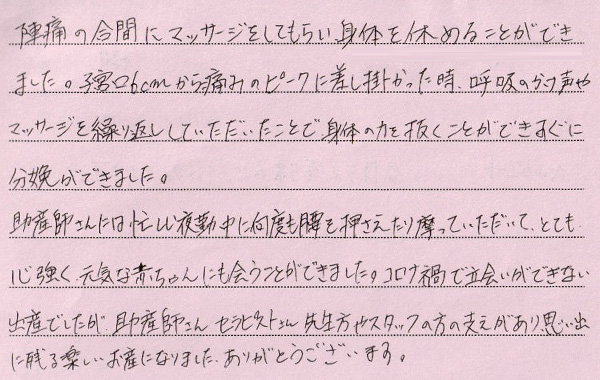 陣痛の合間にマッサージをしてもらい身体を休めることができ
ました。子宮口6cmから痛みのピークに差し掛かった時、呼吸のかけ声や
マッサージを繰り返ししていただいたことで身体の力を抜くことができすぐに
分娩ができました。
助産師さんには忙しい夜勤中に何度も腰を押さえたり摩っていただいて、とても
心強く、元気な赤ちゃんにも会うことができました。コロナ禍で立会いができない
出産でしたが、助産師さん、セラピストさん、先生方やスタッフの方の支えがあり思い出
に残る楽しいお産になりました。ありがとうございます。